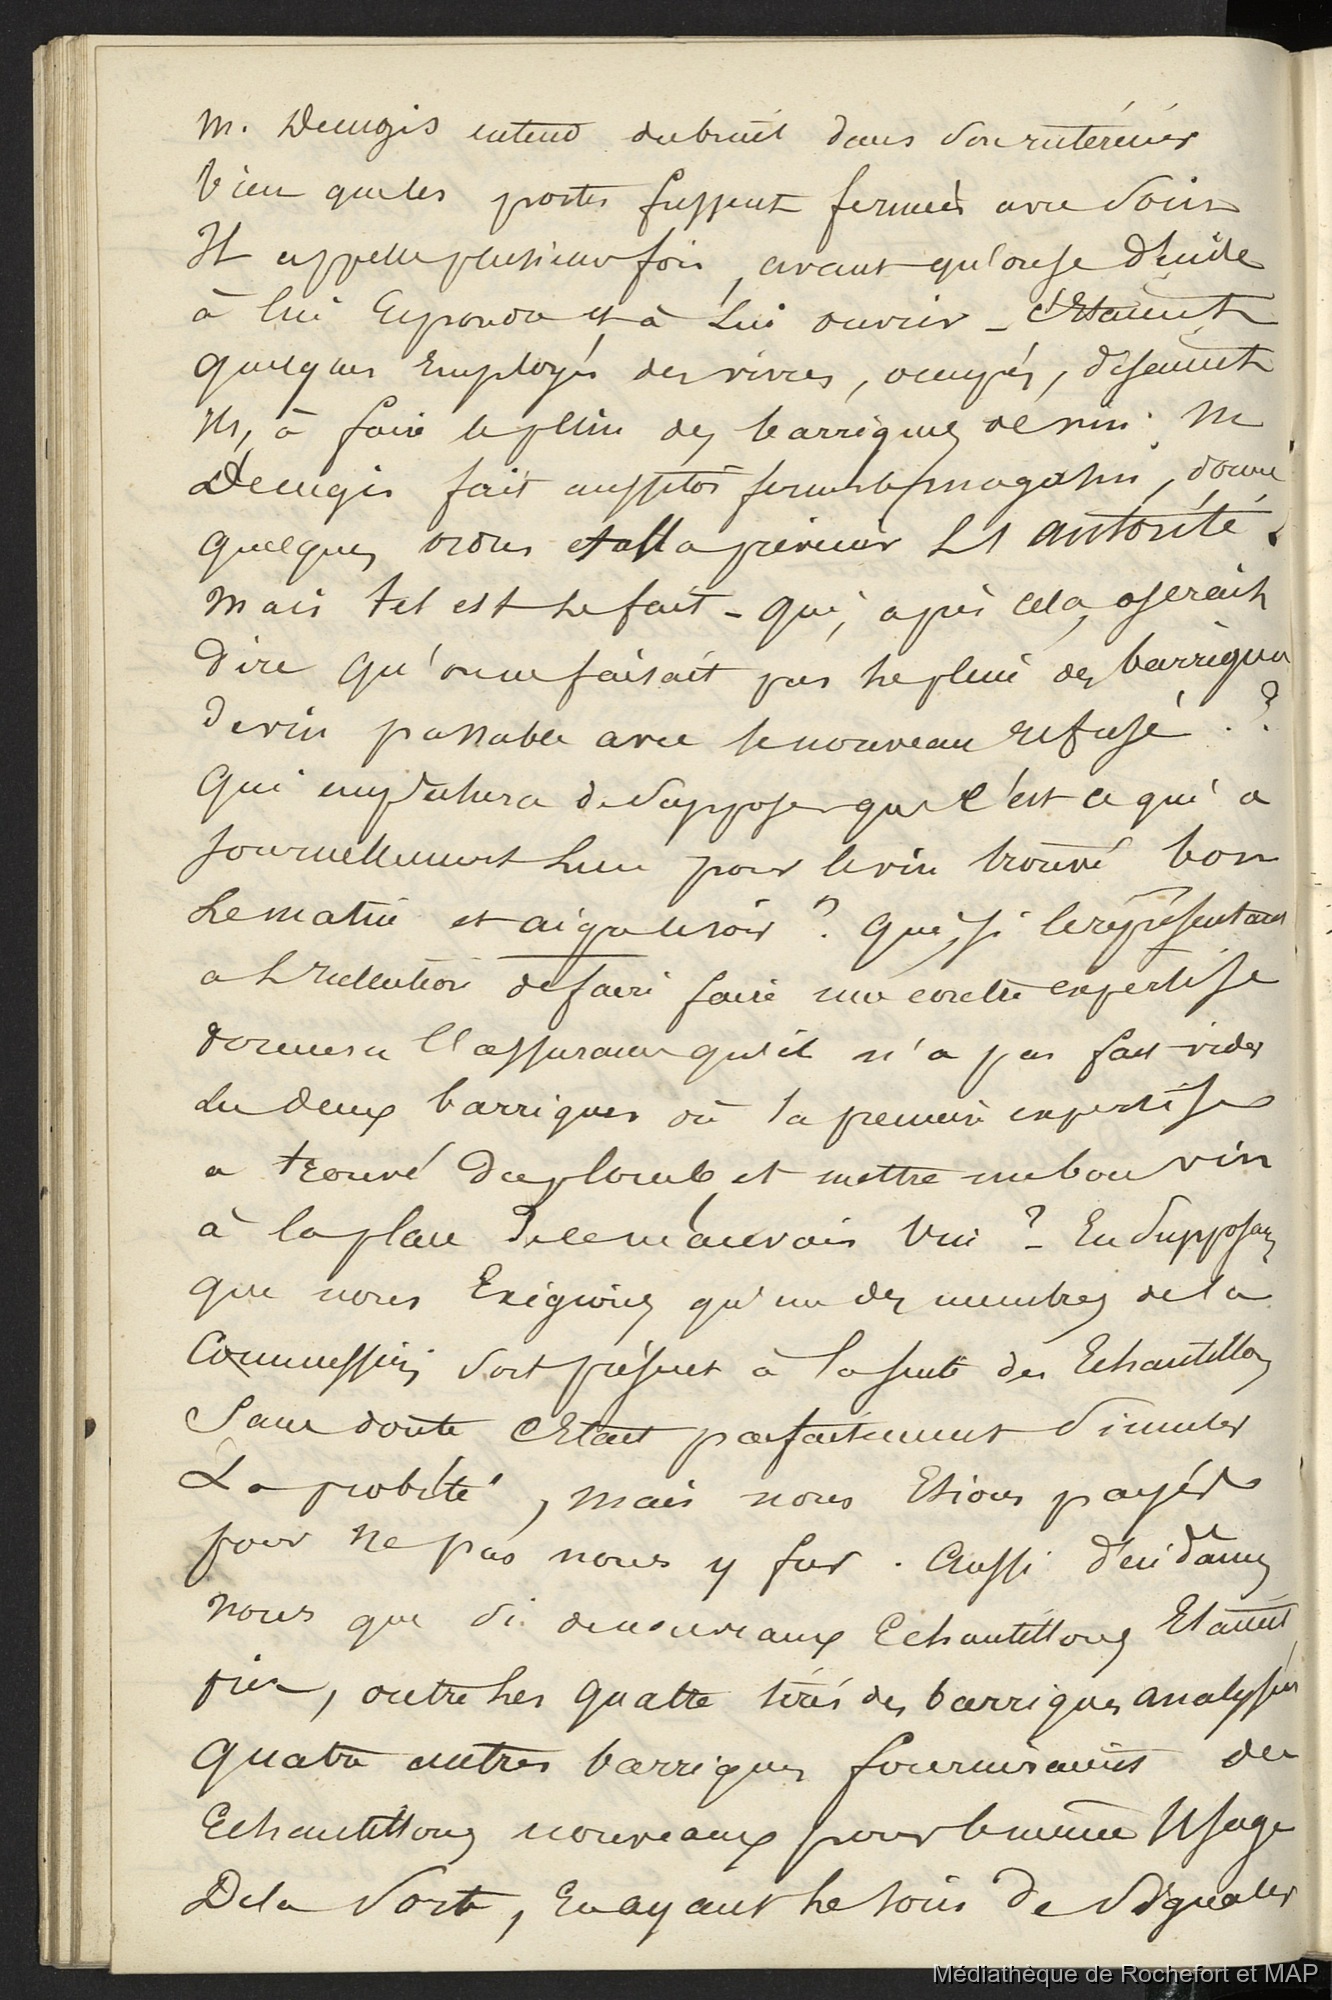 M. Deugis entend du bruit dans son intérieur
bien que les portes fussent fermées avec soin
Il appelle plusieurs fois, avant qu'on se décide
à lui repondre et à lui ouvrir - C'Etaient
quelques Employés des vivres, occupés, disaient
ils, à faire le plein des barriques de vin. M
Deugis fait aussitôt fermer le magasin, donne
quelques ordres et alla prévenir les autorité.
Mais tel est le fait - qui, après cela, oserait
Dire qu'on ne faisait pas le plein des barriques
de vin passable avec le nouveau refusé. ?
Qui empêchera de supposer que c'est ce qui a
journellement lieu pour le vin trouvé bon
le matin et aigre le soir ? Qui, si le représentant
a l'intention de faire faire une contre expertise
donnera l'assurance qu'il n'a pas fait vider
les deux barriques où la première expertise
a trouvé du plomb et mettre un bon vin
à la place de ce mauvais vin ? - En supposant
que nous Exigions qu'un des membres de la
Commission soit présent à la suite des Echantillons
Sans doute c'Etait parfaitement simuler
La probité, mais nous Etions payés
pour ne pas nous y fier. Aussi décidâmes
nous que si de nouveaux Echantillons Etaient
pris, outre les quatre tirés des barriques analysées
quatre autres barriques fourniraient des
Echantillons nouveaux pour le même Usage
De la sorte, En ayant le soin de signaler
Médiathèque de Rochefort et MAP